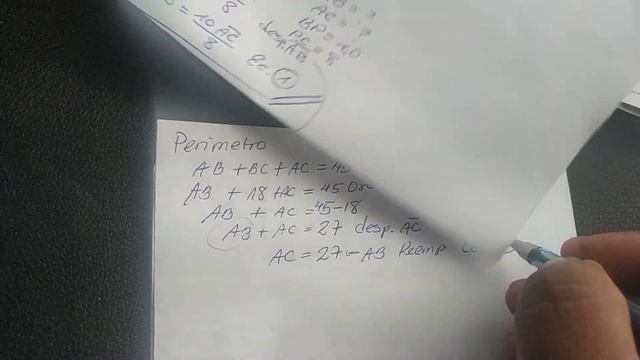 8
AC = ?
BD = 10
DC = 8
= 10 AC
8
desp. AB
Ec. 1
Perimetro
AB + BC + AC = 45
AB + 18 + AC = 45
AB + AC = 45 - 18
AB + AC = 27 desp. AC
AC = 27 - AB Reemp